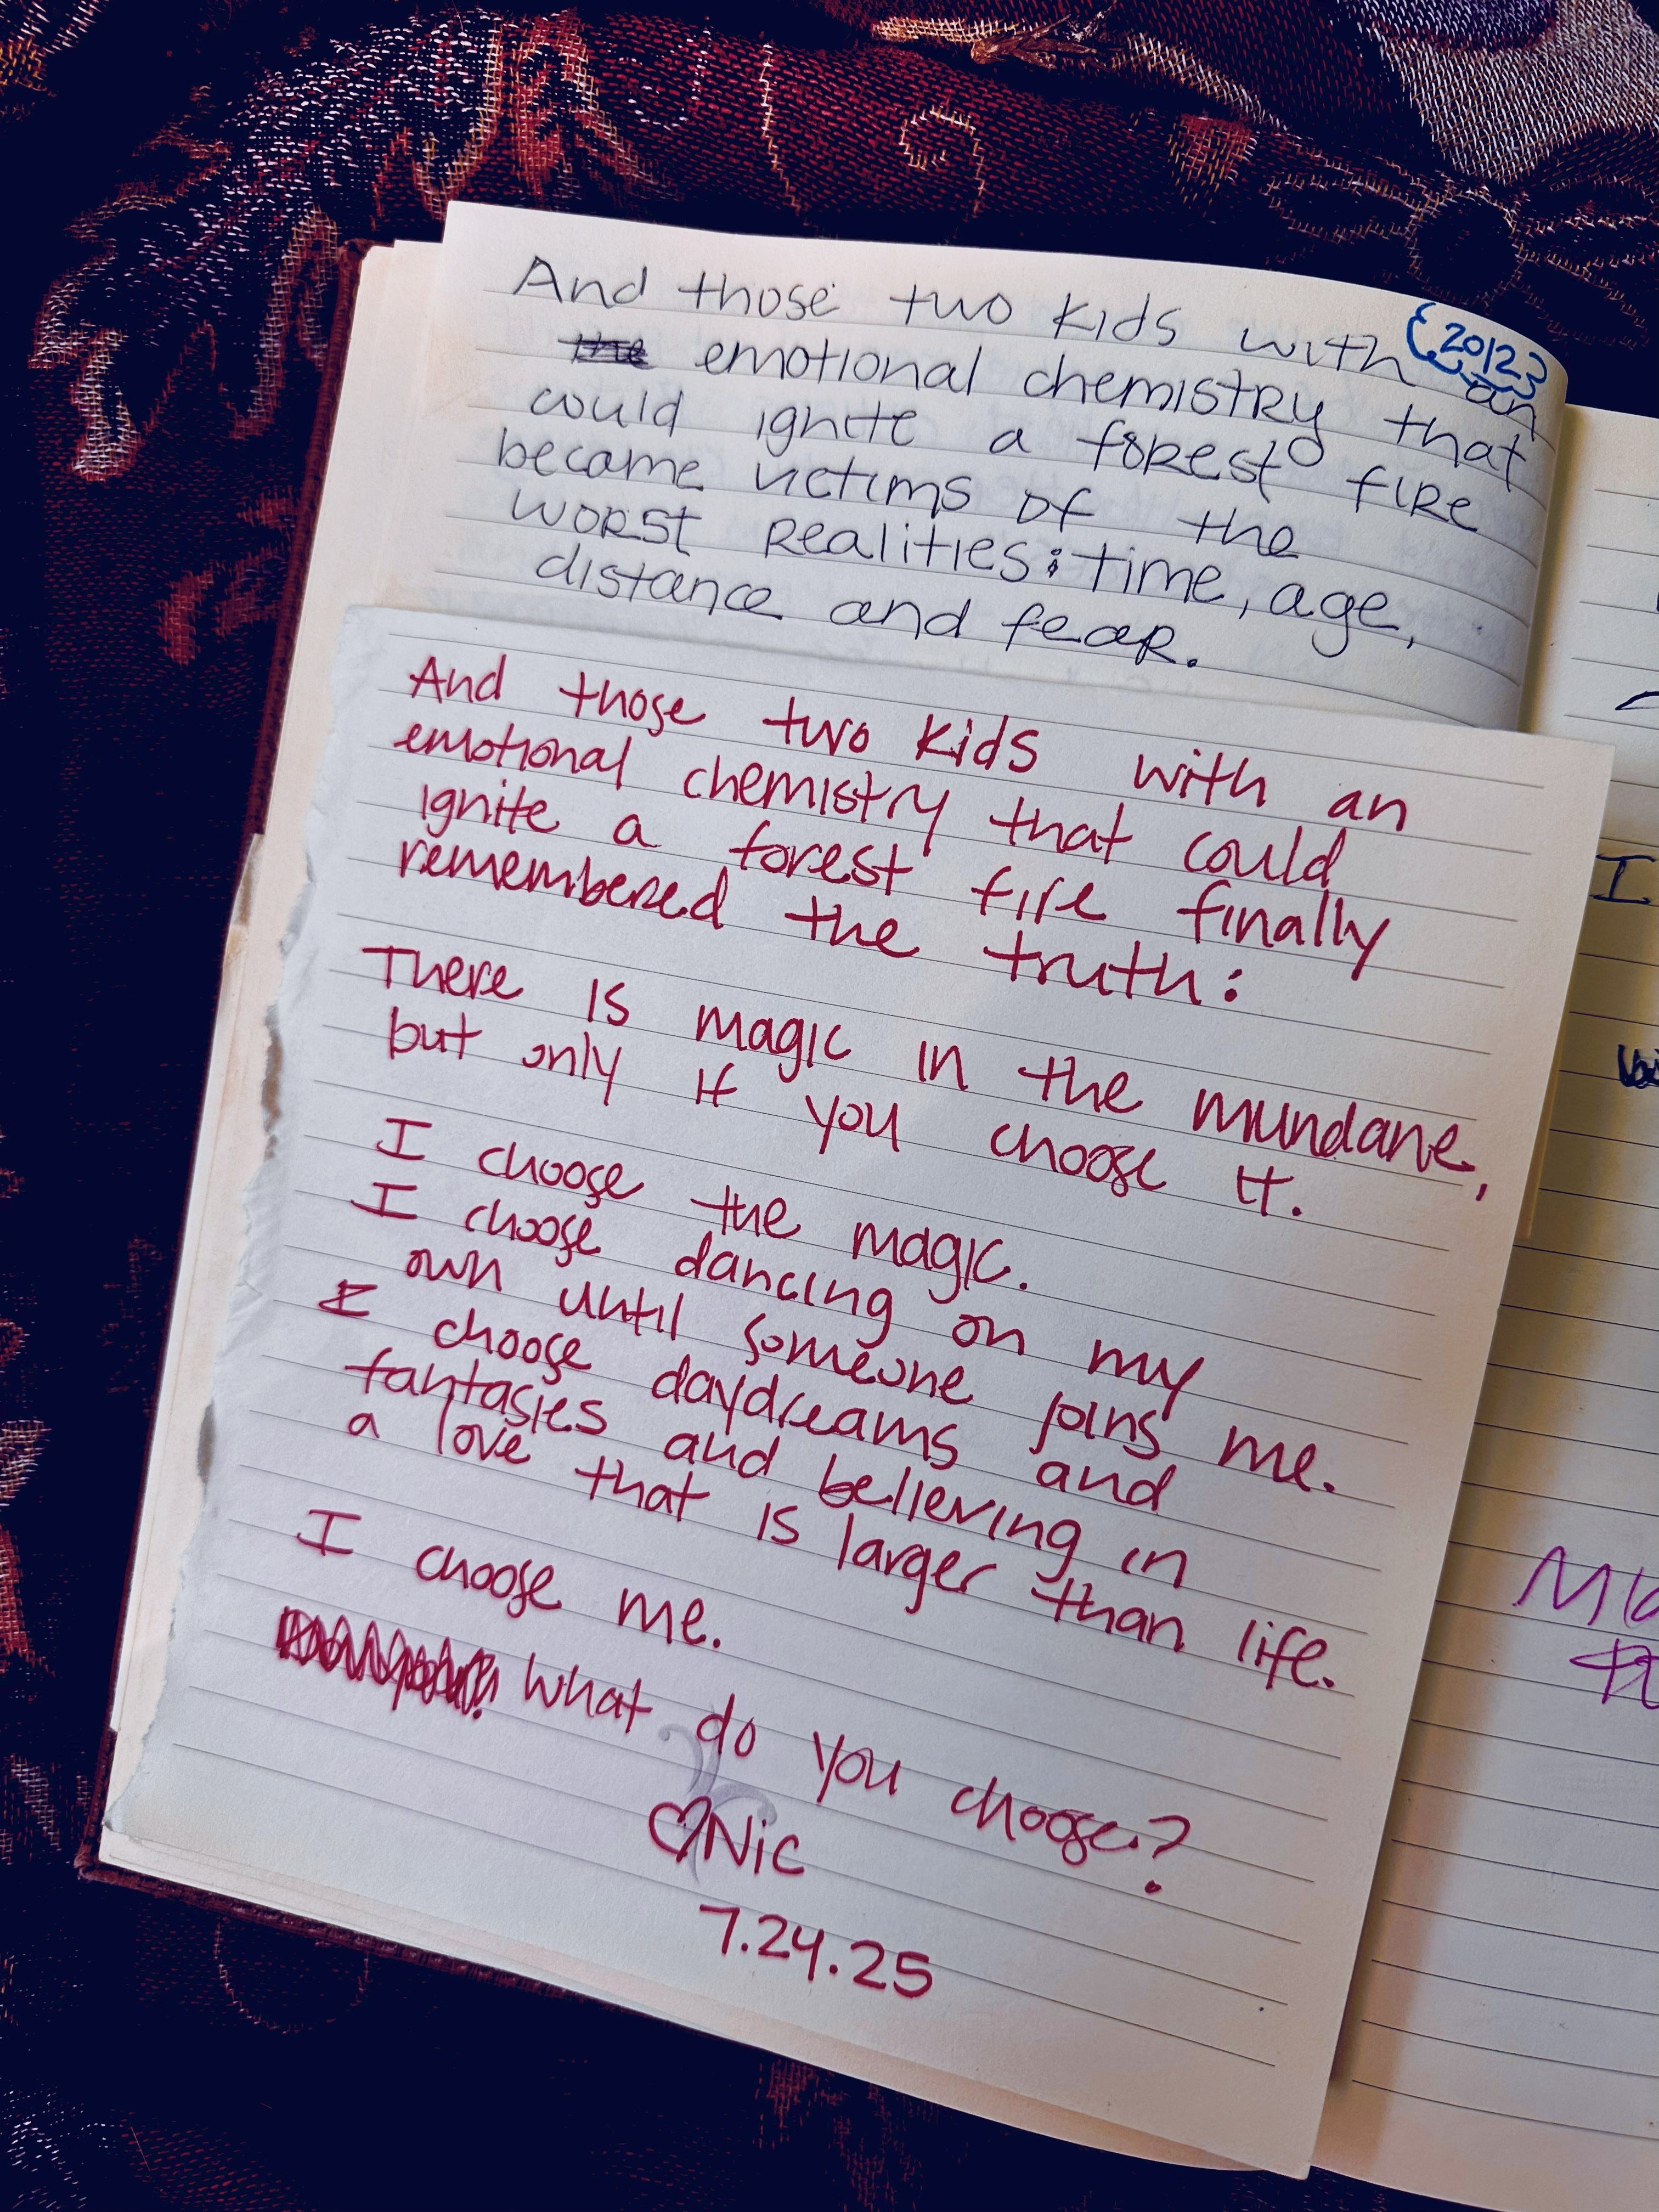 And those two kids with an
{2012}
the emotional chemistry that
could ignite a forest fire
became victims of the
worst realities: time, age,
distance and fear.
And those two kids with an
emotional chemistry that could
ignite a forest fire finally
remembered the truth:
There is magic in the mundane,
but only if you choose it.
I choose the magic.
I choose dancing on my
own until someone joins me.
I choose daydreams and
fantasies and believing in
a love that is larger than life.
I choose me.
What do you choose?
♡Nic
7.24.25
I